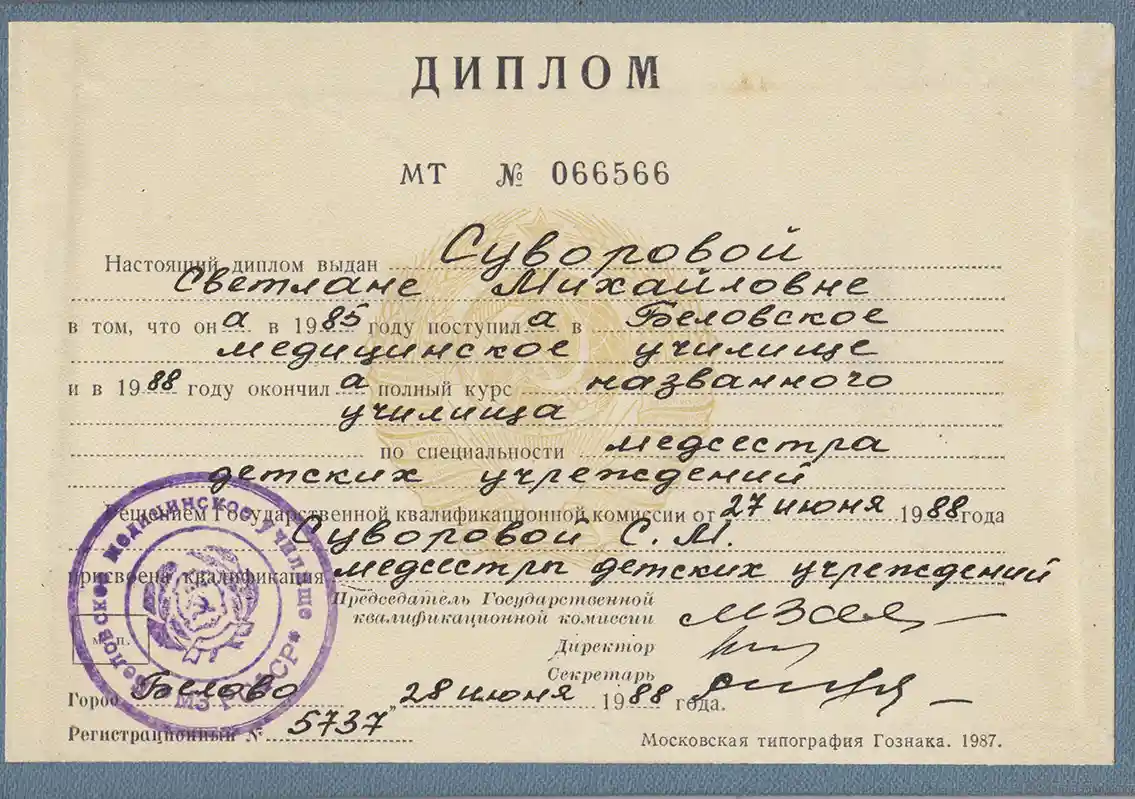 ДИПЛОМ
МТ № 066566
Настоящий диплом выдан Суворовой
Светлане Михайловне
в том, что она в 1985 году поступила в Беловское
медицинское училище
и в 1988 году окончила полный курс названного
училища
по специальности медсестра
детских учреждений
Решением Государственной квалификационной комиссии от 27 июня 1988 года
Суворовой С. М.
присвоена квалификация медсестры детских учреждений
Председатель Государственной
квалификационной комиссии
Директор
Секретарь
м. п.
Город Белово „ 28 июня 1988 года.
Регистрационный № 5737
Московская типография Гознака. 1987.
Беловское медицинское училище
МЗ РСФСР